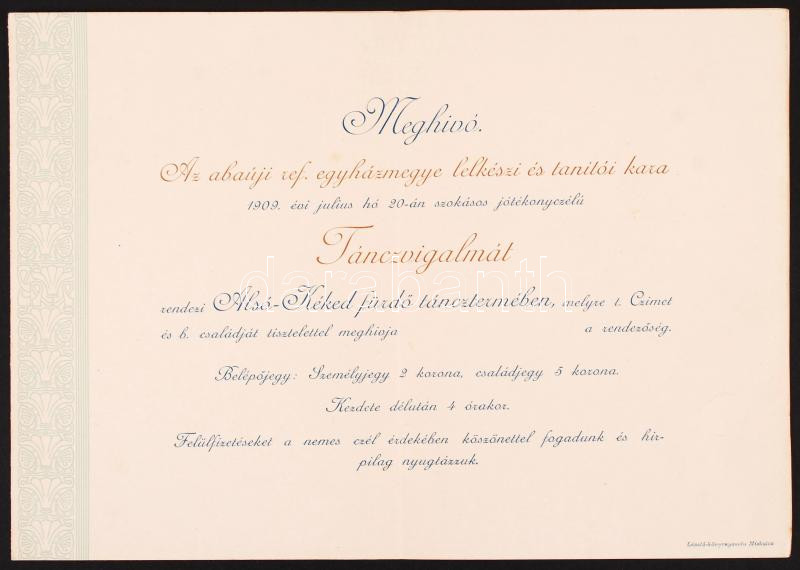 Meghivó.
Az abaúji ref. egyházmegye lelkészi és tanítói kara
1909. évi julius hó 20-án szokásos jótékonyczélú
Tánczvigalmát
rendezi Alsó-Kéked fürdő táncztermében, melyre t. Czimet
és b. családját tisztelettel meghivja a rendezőség.
Belépőjegy: Személyjegy 2 korona, családjegy 5 korona.
Kezdete délután 4 órakor.
Felülfizetéseket a nemes czél érdekében köszönettel fogadunk és hir-
pilag nyugtázzuk.
darabanth
László-könyvnyomda Miskolcz